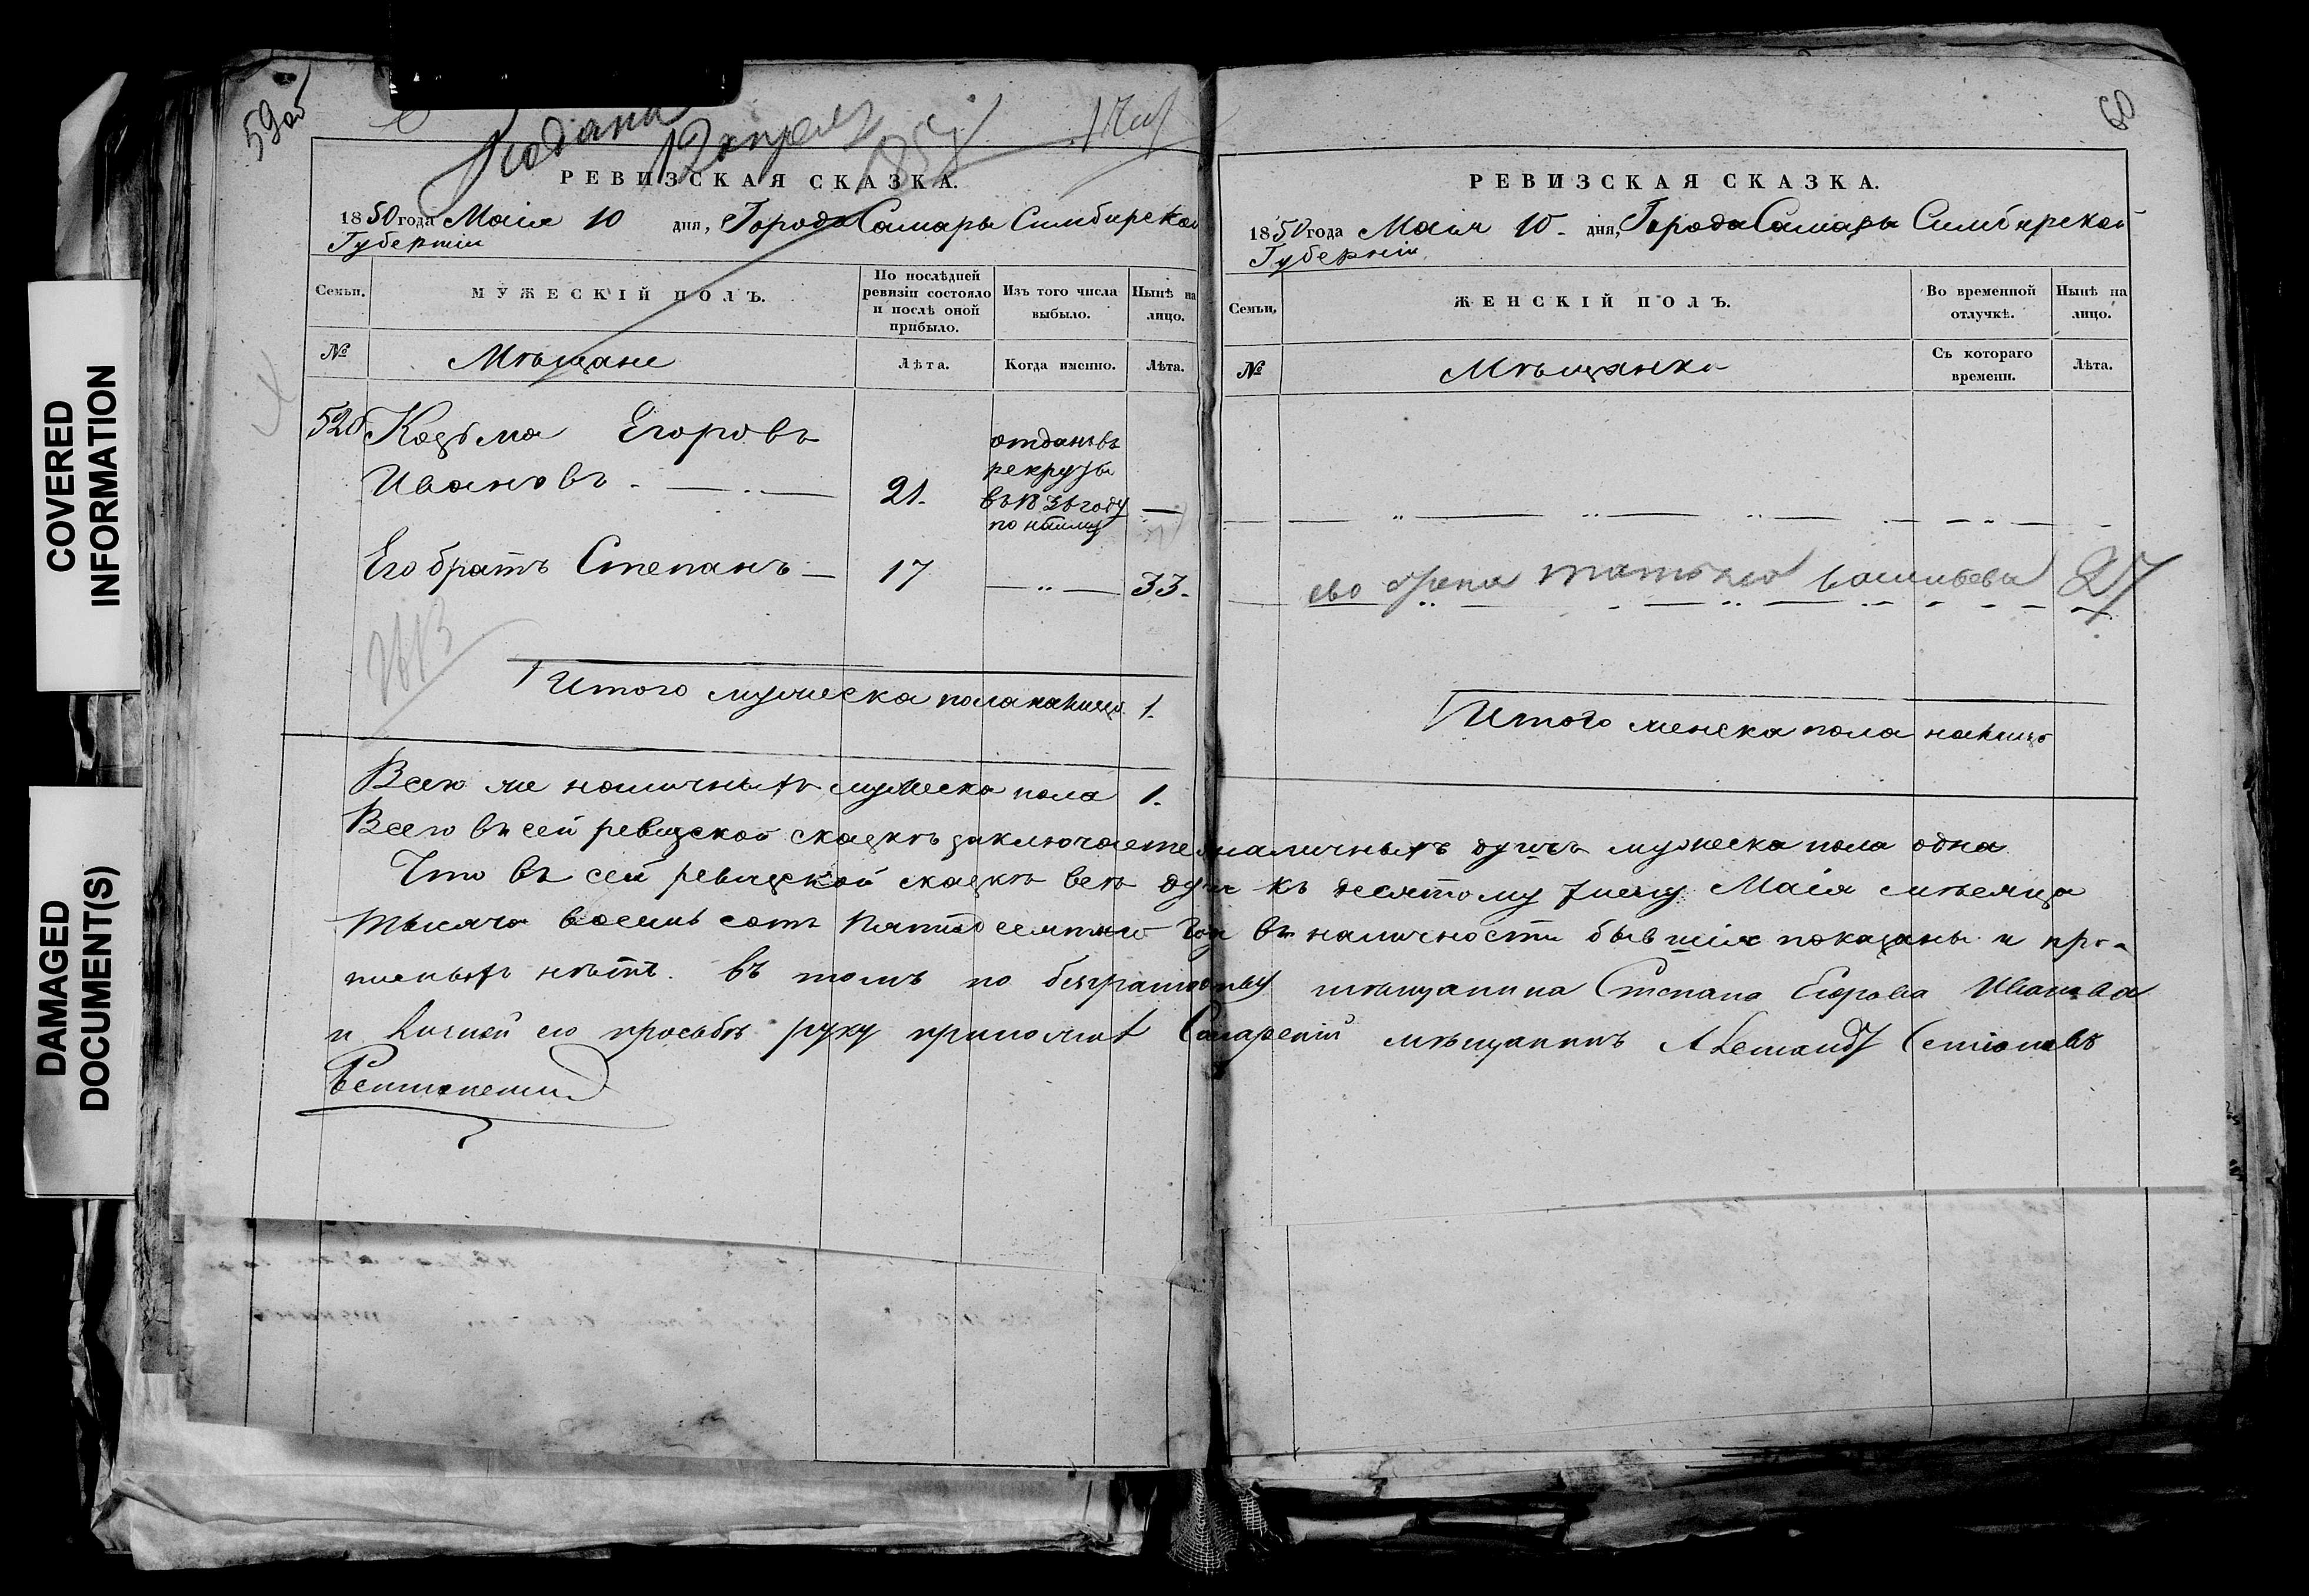 59об
Подана
12 апреля
185
РЕВИЗСКАЯ СКАЗКА.
1850 года Маія 10 дня, Города Самары Симбирской
Губерніи
Семьи.
МУЖЕСКІЙ ПОЛЪ.
По послѣдней ревизіи состояло и послѣ оной прибыло.
Изъ того числа выбыло.
Нынѣ на лицо.
№
Мѣщане
Лѣта.
Когда именно.
Лѣта.
520 Козьма Егоровъ
Ивановъ 21.
отданъ въ
рекруты
въ году
по найму
Его братъ Степанъ 17 33.
Итого мужеска пола налицо 1.
Всего же наличныхъ мужеска пола 1.
60
РЕВИЗСКАЯ СКАЗКА.
1850 года Маія 10 дня, Города Самары Симбирской
Губерніи
Семьи.
ЖЕНСКІЙ ПОЛЪ.
Во временной отлучкѣ.
Нынѣ на лицо.
№
Мѣщанки
Съ котораго времени.
Лѣта.
ево жена Татьяна Васильева 27
Итого женска пола налицо
Всего въ сей ревизской сказкѣ заключается наличныхъ душъ мужеска пола одна
Что въ сей ревизской сказкѣ всѣ души къ десятому числу Маія мѣсяца
тысяча восемь сотъ пятидесятого года въ наличности бывшія показаны и про-
писныхъ нѣтъ. въ томъ по безграмотству мѣщанина Степана Егорова Иванова
и личной ево просьбѣ руку приложилъ Самарскій мѣщанинъ Семіоновъ
COVERED
INFORMATION
DAMAGED
DOCUMENT(S)